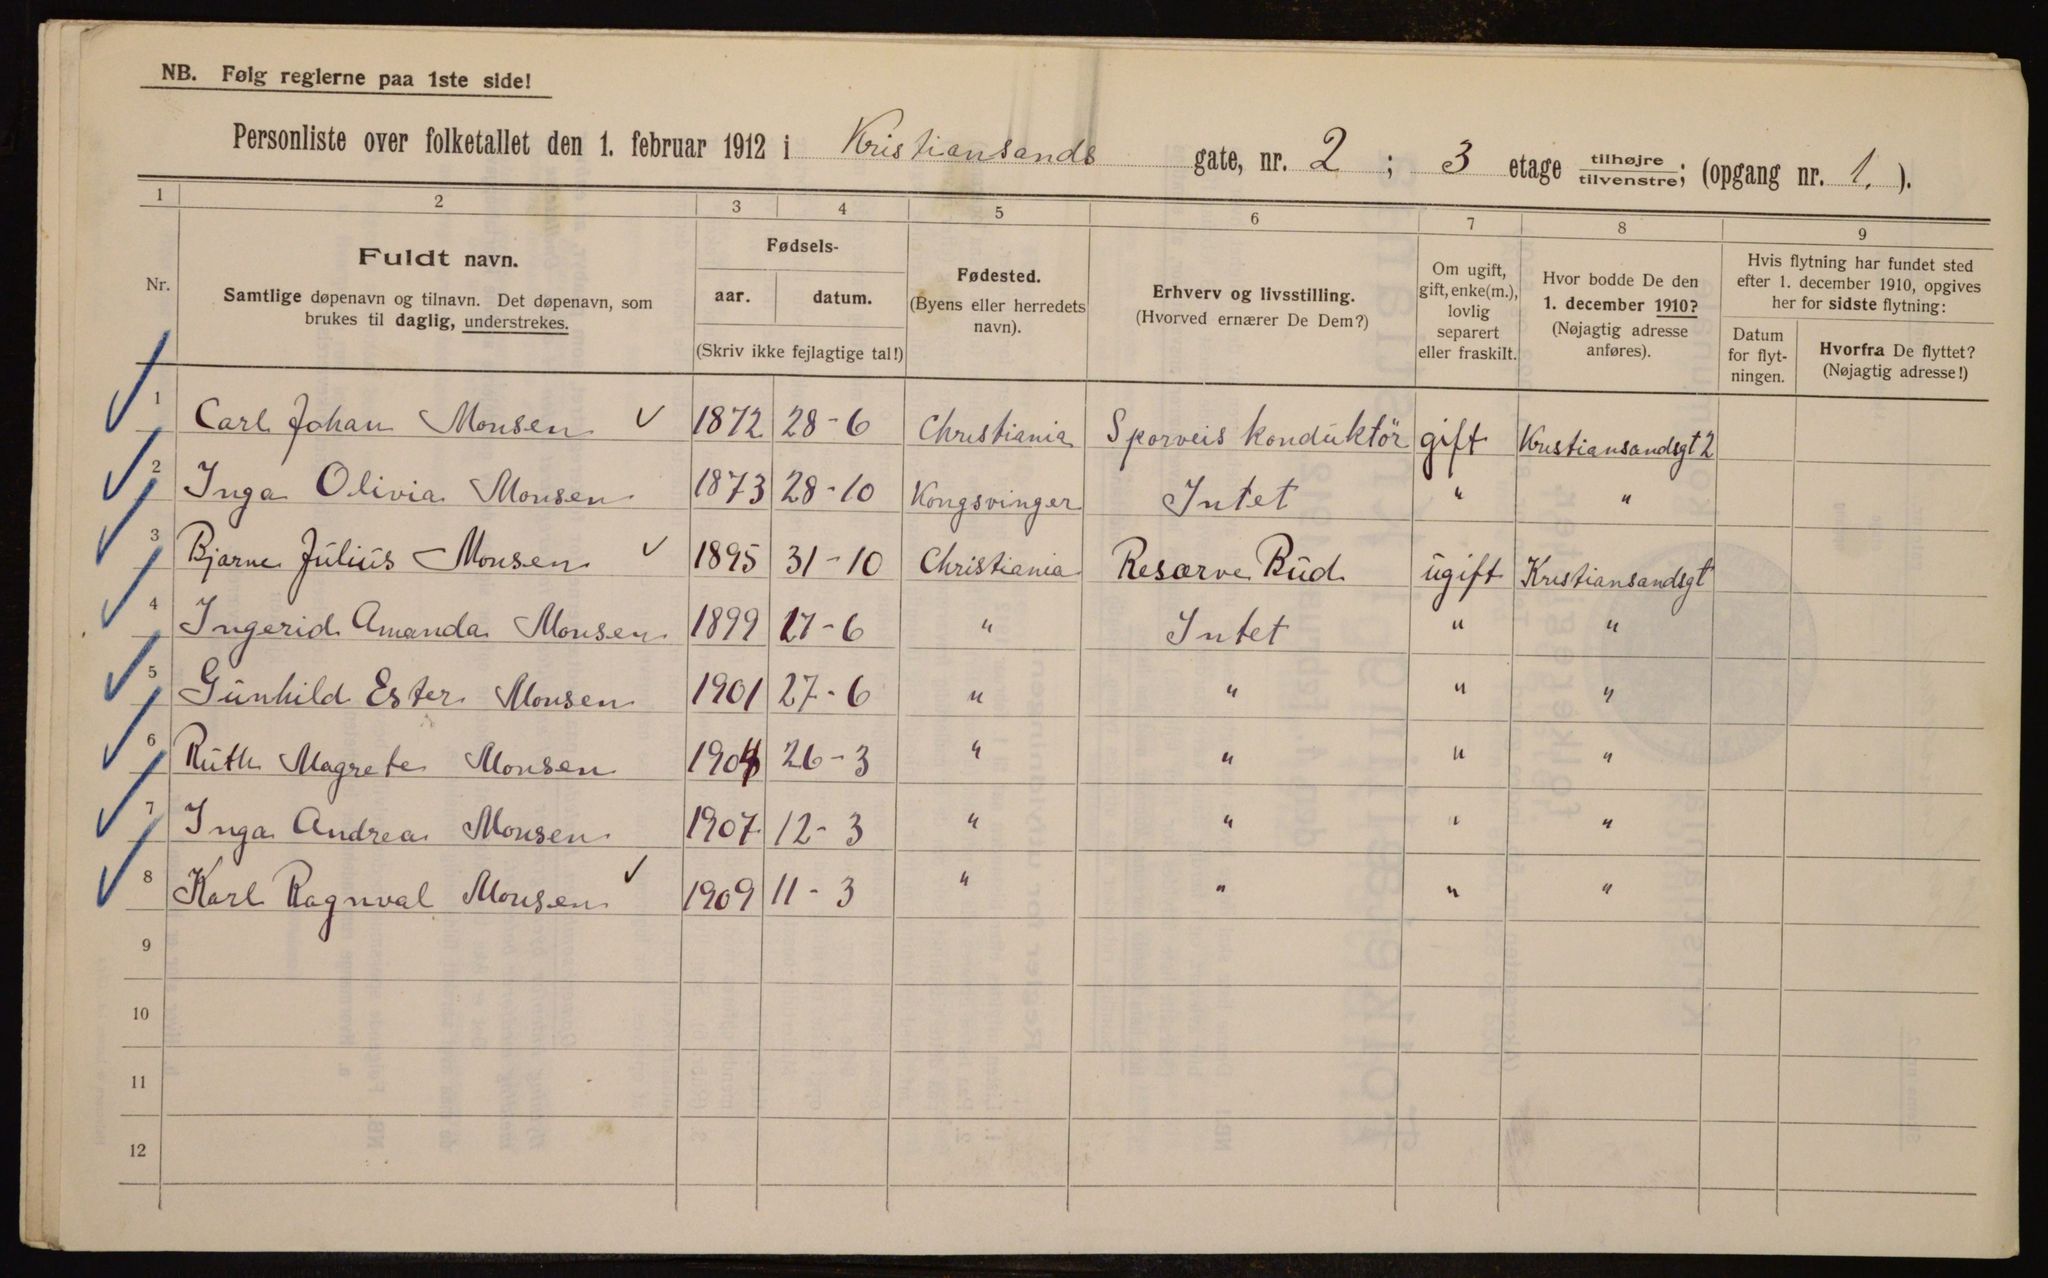 NB. Følg reglerne paa 1ste side!
Personliste over folketallet den 1. februar 1912 i Kristiansands gate, nr. 2 ; 3 etage tilhøjre / tilvenstre; (opgang nr. 1. ).
1 2 3 4 5 6 7 8 9
Nr.
Fuldt navn.
Samtlige døpenavn og tilnavn. Det døpenavn, som
brukes til daglig, understrekes.
Fødsels-
aar. datum.
(Skriv ikke fejlagtige tal!)
Fødested.
(Byens eller herredets
navn).
Erhverv og livsstilling.
(Hvorved ernærer De Dem?)
Om ugift,
gift, enke(m.),
lovlig
separert
eller fraskilt.
Hvor bodde De den
1. december 1910?
(Nøjagtig adresse
anføres).
Hvis flytning har fundet sted
efter 1. december 1910, opgives
her for sidste flytning:
Datum
for flyt-
ningen.
Hvorfra De flyttet?
(Nøjagtig adresse!)
1 Carl Johan Monsen 1872 28-6 Christiania Sporveis konduktör gift Kristiansandsgt 2
2 Inga Olivia Monsen 1873 28-10 Kongsvinger Intet " "
3 Bjarne Julius Monsen 1895 31-10 Christiania Resærve Bud ugift Kristiansandsgt
4 Ingerid Amanda Monsen 1899 27-6 " Intet " "
5 Gunhild Ester Monsen 1901 27-6 " " " "
6 Ruth Magrete Monsen 1904 26-3 " " " "
7 Inga Andrea Monsen 1907 12-3 " " " "
8 Karl Ragnval Monsen 1909 11-3 " " " "
9
10
11
12